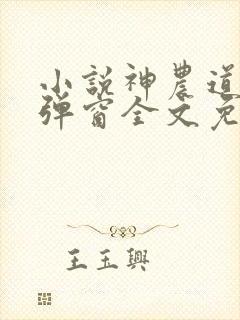 小說神農道
彈窗全文免
王玉興